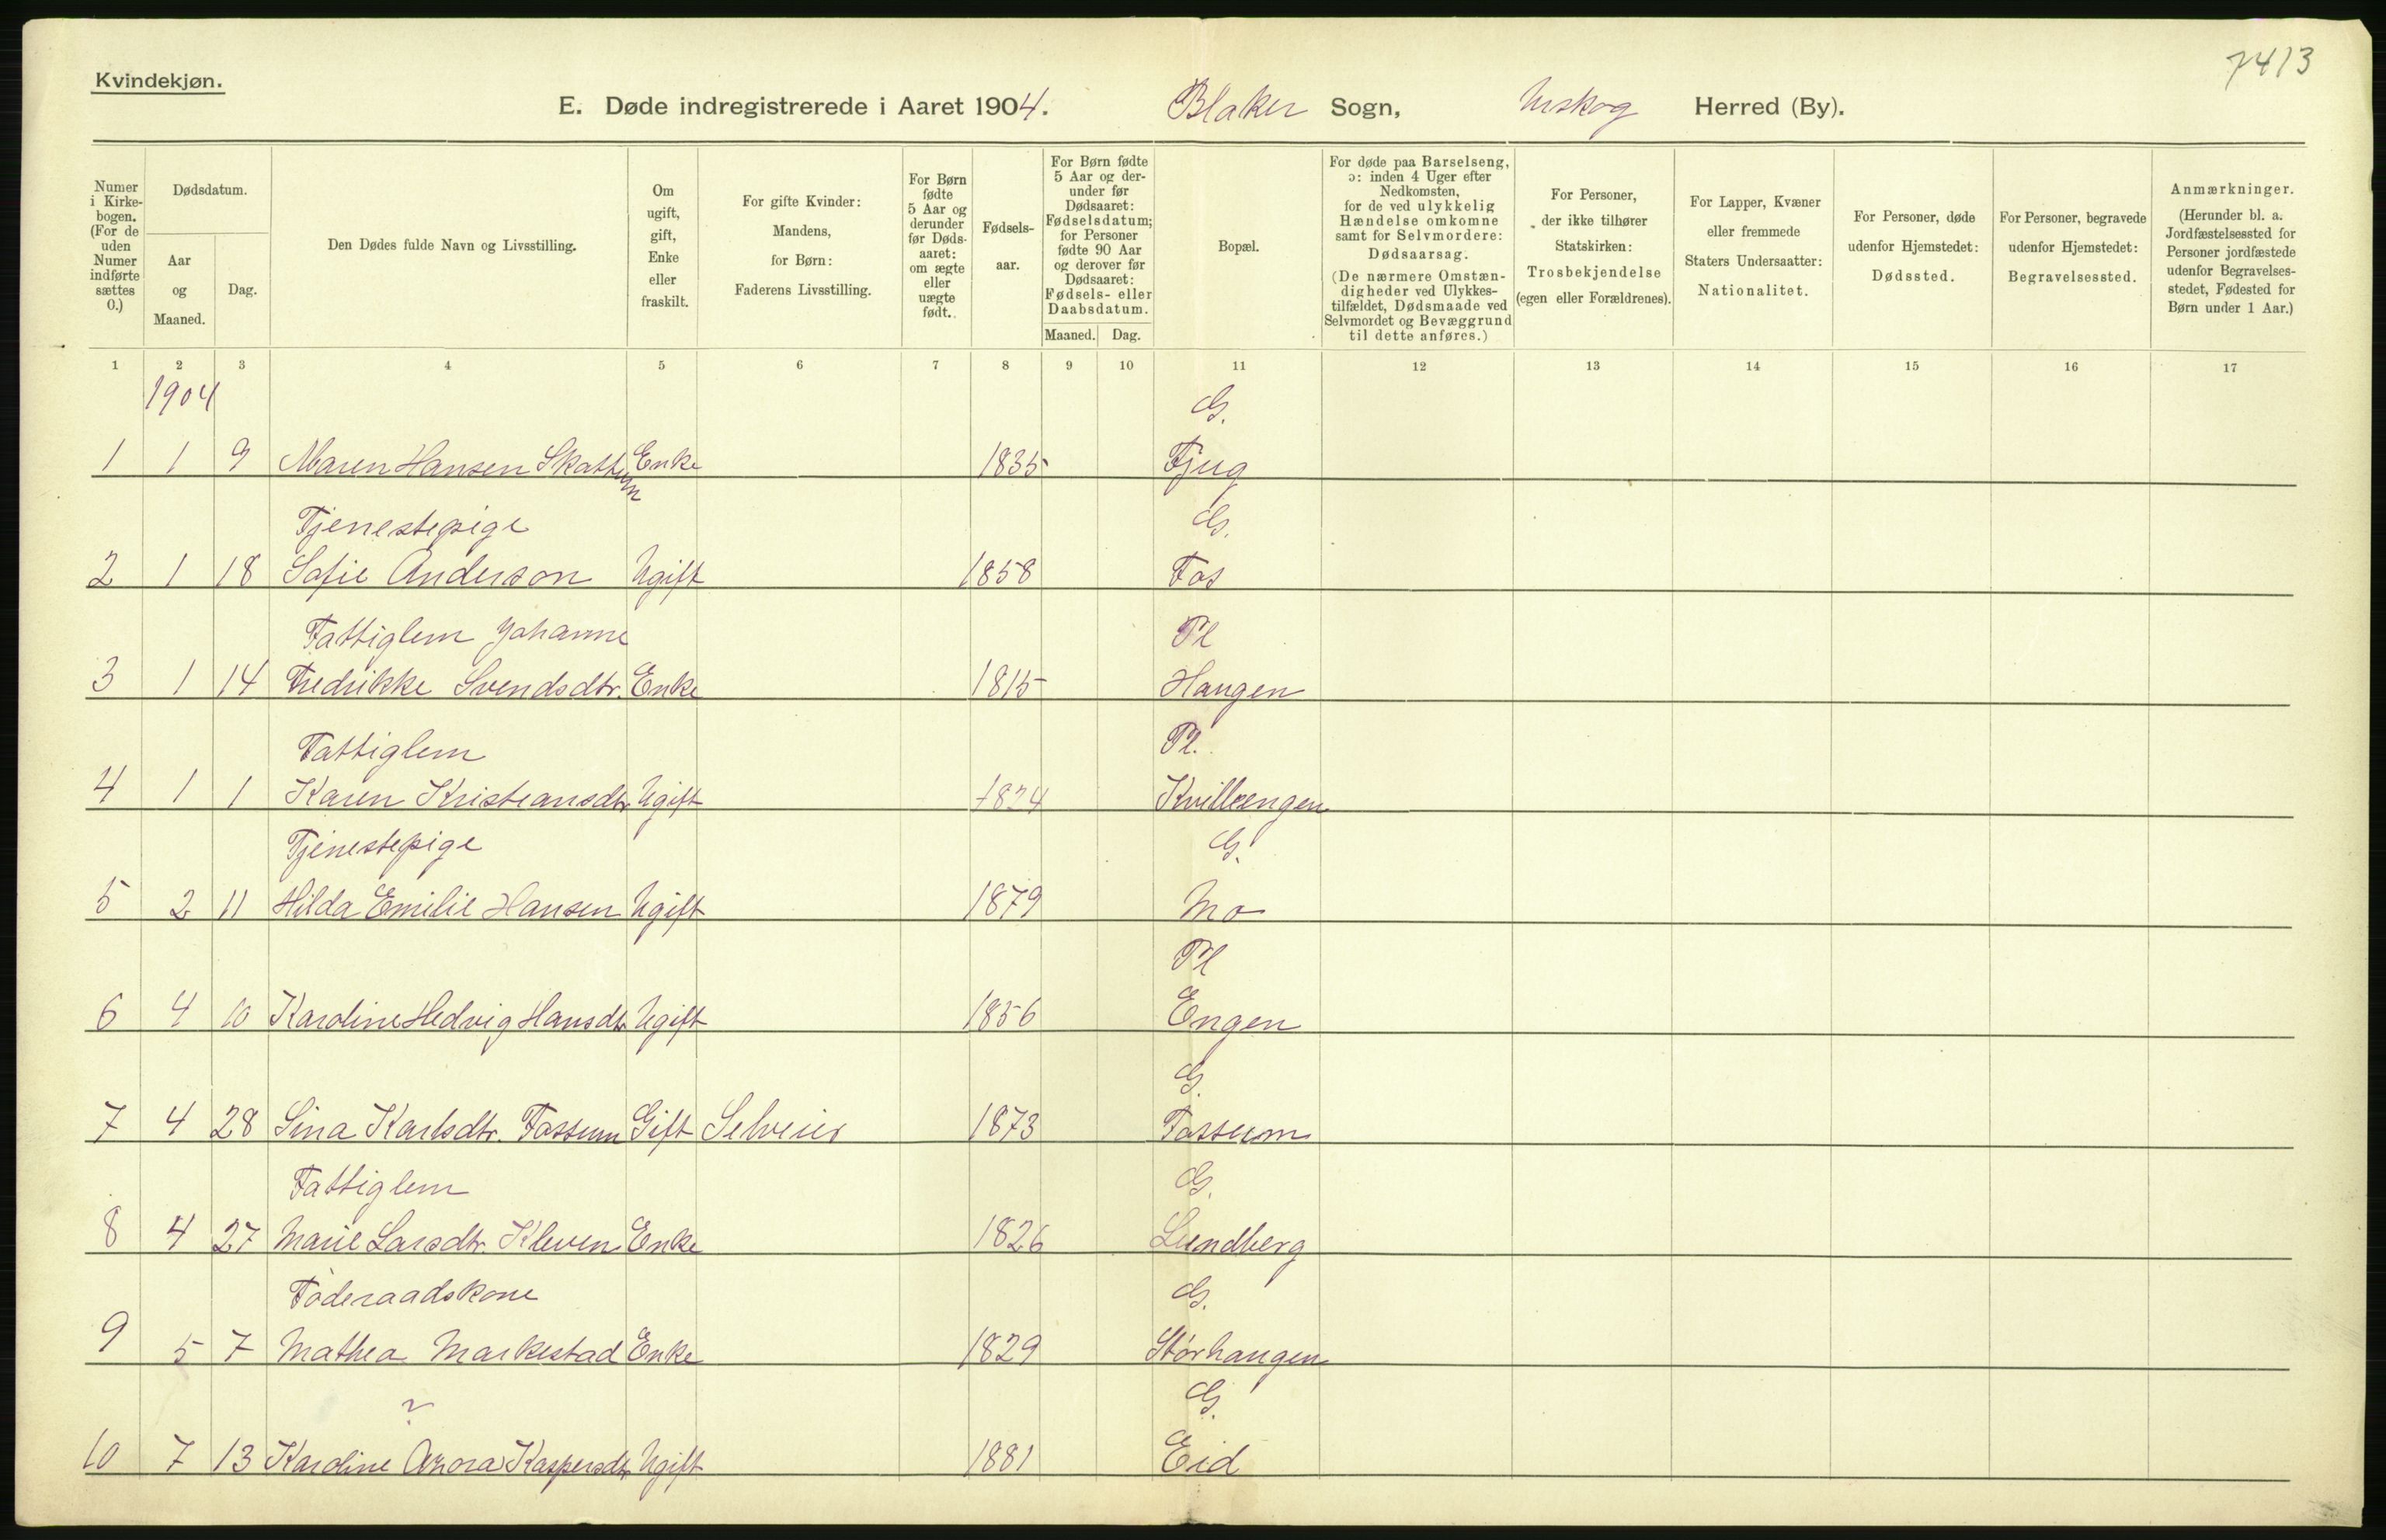 7413
Kvindekjøn.
E. Døde indregistrerede i Aaret 1904. Blaker Sogn, Urskog Herred (By).
Numer i Kirke-bogen. (For de uden Numer indførte sættes 0.)
Dødsdatum.
Aar og Maaned.
Dag.
Den Dødes fulde Navn og Livsstilling.
Om ugift, gift, Enke eller fraskilt.
For gifte Kvinder: Mandens, for Børn: Faderens Livsstilling.
For Børn fødte 5 Aar og derunder før Døds-aaret: om ægte eller uægte født.
Fødsels-aar.
For Børn fødte 5 Aar og der-under før Dødsaaret: Fødselsdatum; for Personer fødte 90 Aar og derover før Dødsaaret: Fødsels- eller Daabsdatum.
Maaned. Dag.
Bopæl.
For døde paa Barselseng, ɔ: inden 4 Uger efter Nedkomsten, for de ved ulykkelig Hændelse omkomne samt for Selvmordere: Dødsaarsag. (De nærmere Omstæn-digheder ved Ulykkes-tilfældet, Dødsmaade ved Selvmordet og Bevæggrund til dette anføres.)
For Personer, der ikke tilhører Statskirken: Trosbekjendelse (egen eller Forældrenes).
For Lapper, Kvæner eller fremmede Staters Undersaatter: Nationalitet.
For Personer, døde udenfor Hjemstedet: Dødssted.
For Personer, begravede udenfor Hjemstedet: Begravelsessted.
Anmærkninger. (Herunder bl. a. Jordfæstelsessted for Personer jordfæstede udenfor Begravelses-stedet, Fødested for Børn under 1 Aar.)
1 2 3 4 5 6 7 8 9 10 11 12 13 14 15 16 17
1904 G.
1 1 9 Maren Hansen Skattum Enke 1835 Fjug
Tjenestepige G.
2 1 18 Sofie Anderson Ugift 1858 Fos
Fattiglem Johanne Pl
3 1 14 Fredrikke Svendsdtr. Enke 1815 Haugen
Fattiglem Pl.
4 1 1 Karen Kristiansdtr Ugift 1824 Kvilleengen
Tjenestepige G.
5 2 11 Hilda Emilie Hansen Ugift 1879 Mo
Pl
6 4 10 Karoline Hedvig Hansdtr Ugift 1856 Engen
G.
7 4 28 Sina Karlsdtr. Fossum Gift Selveier 1873 Fossum
Fattiglem G.
8 4 27 Marie Larsdtr. Kleven Enke 1826 Lundberg
Föderaadskone G.
9 5 7 Mathea Markestad Enke 1829 Störhaugen
? G.
10 7 13 Karoline Azora Kaspersdtr Ugift 1881 Eid